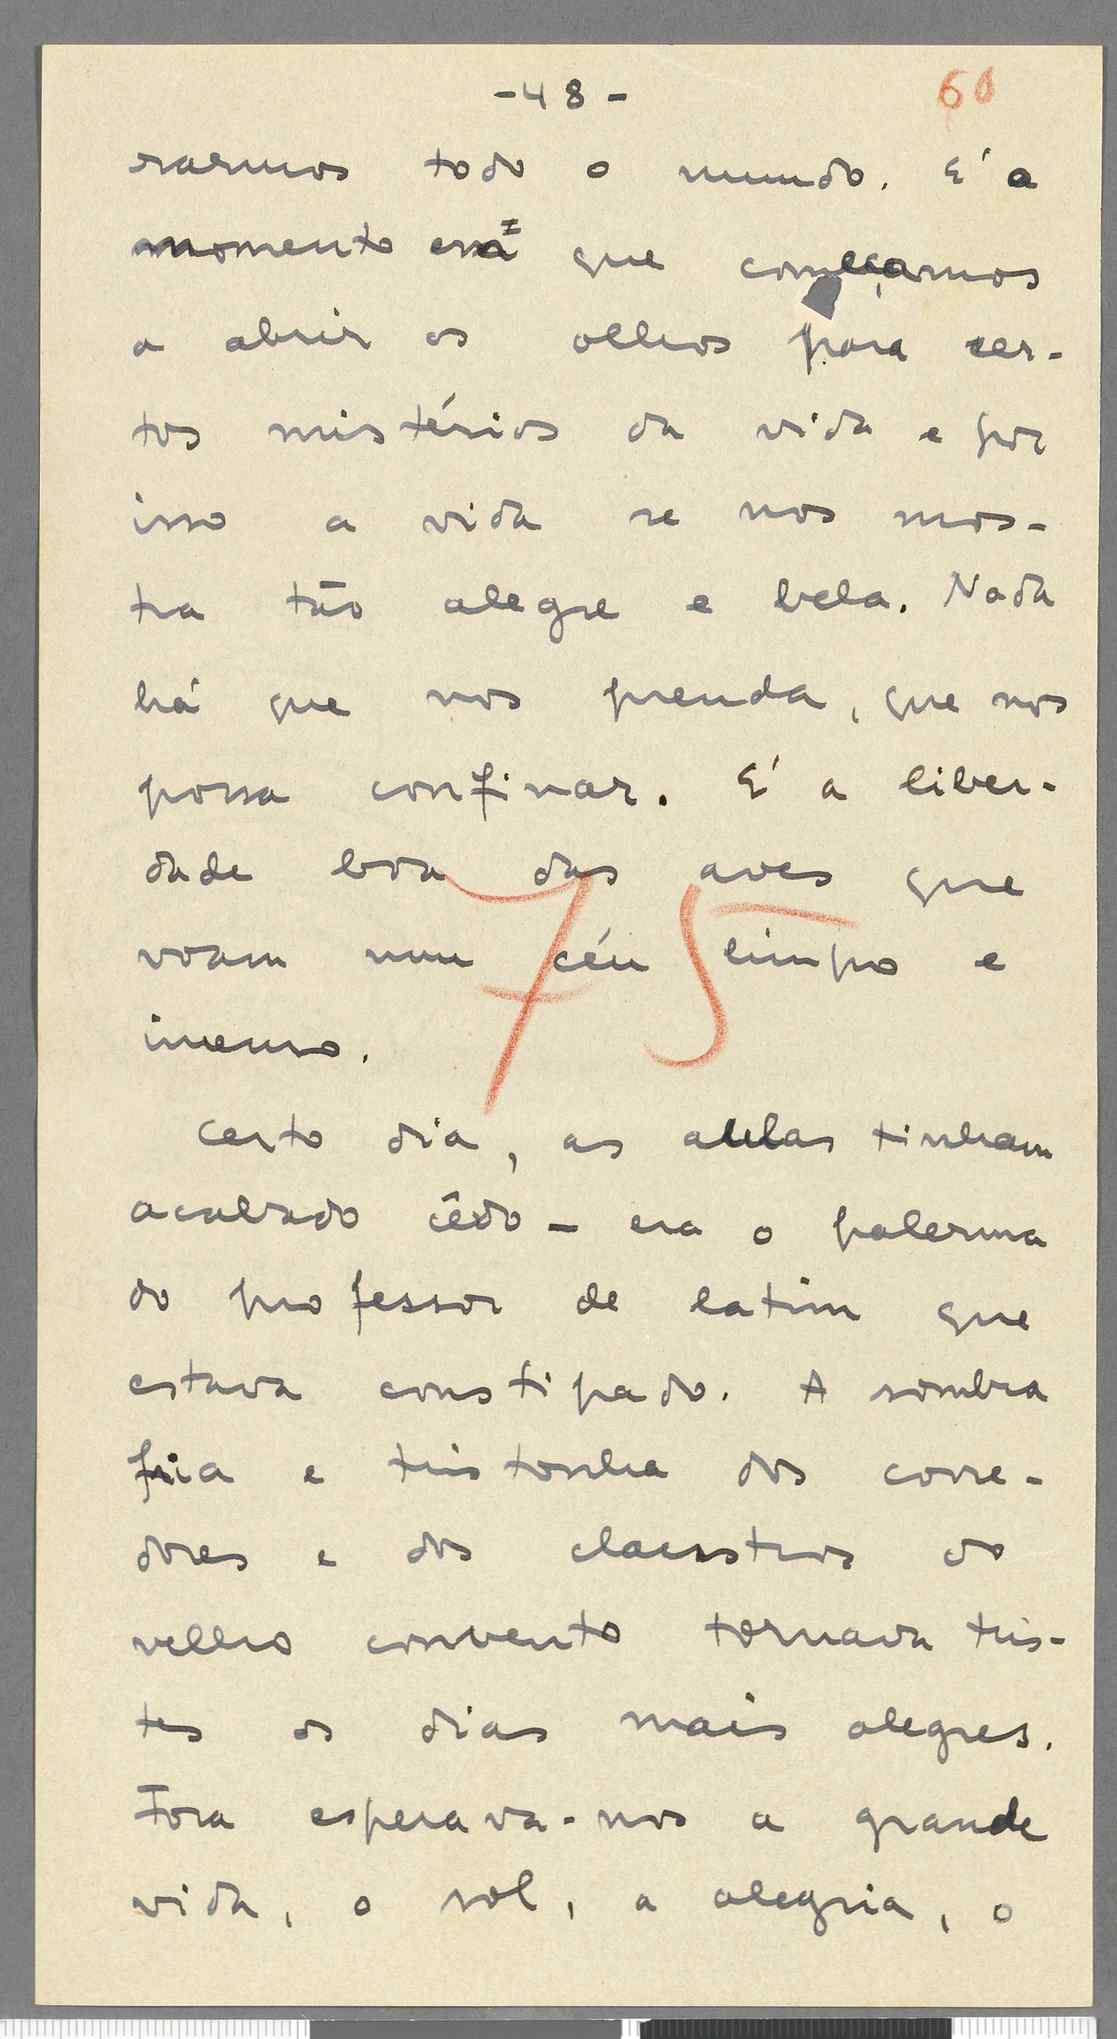 -48-
60
rarmos todo o mundo. E' o
momento em que começamos
a abrir os olhos para cer-
tos mistérios da vida e por
isso a vida se nos mos-
tra tão alegre e bela. Nada
há que nos prenda, que nos
possa confinar. E' a liber-
dade boa das aves que
voam num céu limpo e
imenso.
75
Certo dia, as aulas tinham
acabado cêdo - era o palerma
do professor de latim que
estava constipado. A sombra
fria e tristonha dos corre-
dores e dos claustros do
velho convento tornava tris-
tes os dias mais alegres.
Fora esperava-nos a grande
vida, o sol, a alegria, o